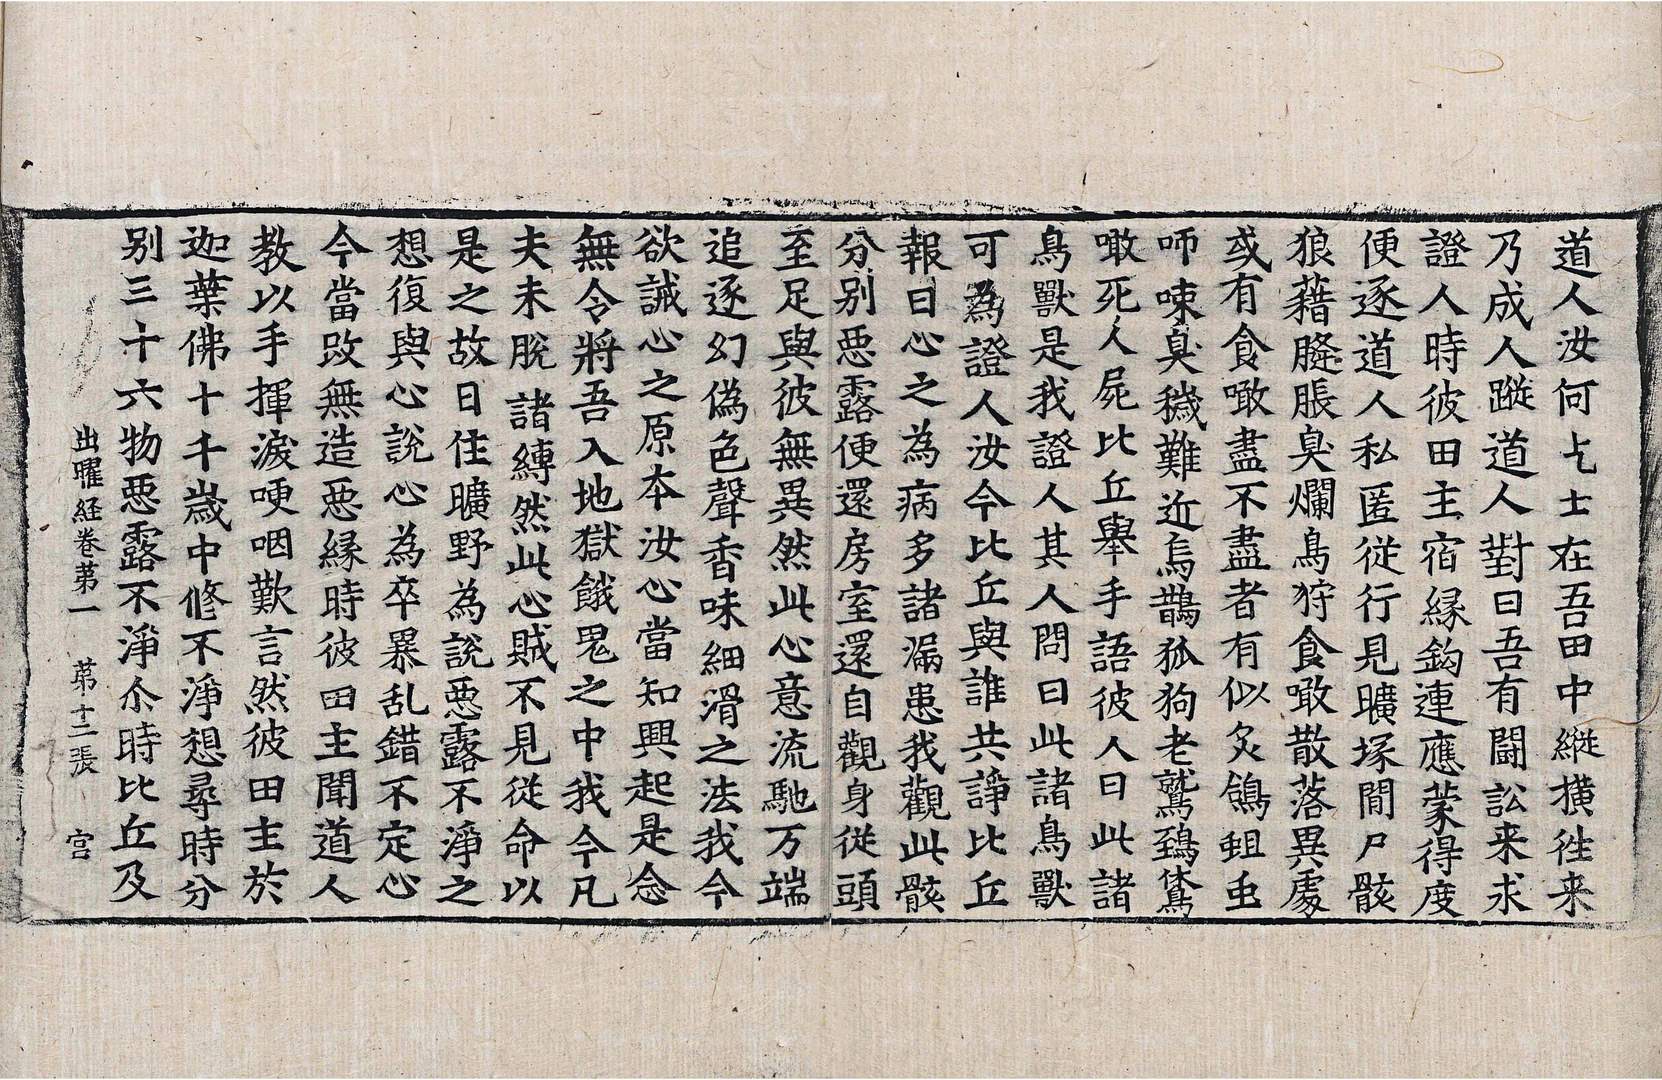 道人汝何乞士在吾田中縱撗徃来
乃成人蹤道人對曰吾有鬪訟来求
證人時彼田主宿縁鈎連應蒙得度
便逐道人私匿從行見曠塚間尸骸
狼藉膖脹臭爛鳥狩食噉散落異處
或有食噉盡不盡者有似灸鴿蛆虫
咂𠲿臭穢難近烏鵲狐狗老鷲鵄鵂
噉死人屍比丘舉手語彼人曰此諸
鳥獸是我證人其人問曰此諸鳥獸
可為證人汝今比丘與誰共諍比丘
報曰心之為病多諸漏患我觀此骸
分別惡露便還房室還自觀身從頭
至足與彼無異然此心意流馳万端
追逐幻偽色聲香味細滑之法我今
欲誡心之原本汝心當知興起是念
無令將吾入地獄餓鬼之中我今凡
夫未脫諸縛然此心賊不見從命以
是之故日住曠野為說惡露不淨之
想復與心說心為卒暴乱錯不定心
今當改無造惡縁時彼田主聞道人
教以手揮淚哽咽歎言然彼田主於
迦葉佛十千歲中修不淨想尋時分
別三十六物惡露不淨尒時比丘及
出曜経卷苐一 苐十二張 宫